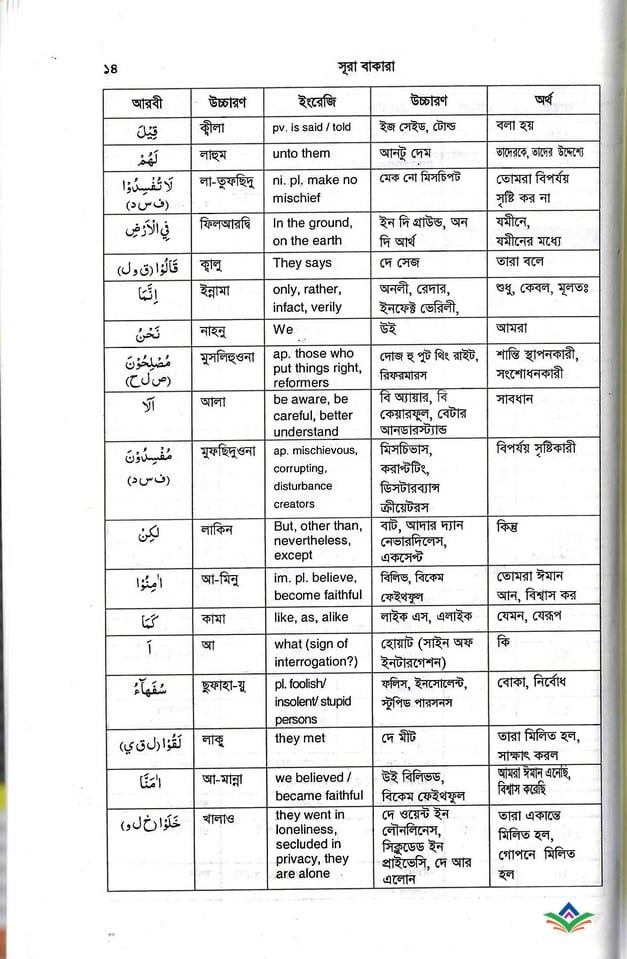 ১৪ সূরা বাকারা
আরবী উচ্চারণ ইংরেজি উচ্চারণ অর্থ
قِيْلَ ক্বীলা pv. is said / told ইজ সেইড, টোল্ড বলা হয়
لَهُمْ লাহুম unto them আনটু দেম তাদেরকে, তাদের উদ্দেশ্যে
لَا تُفْسِدُوْا লা-তুফছিদু ni. pl. make no মেক নো মিসচিপট তোমরা বিপর্যয়
(ف س د) mischief সৃষ্টি কর না
فِي الْاَرْضِ ফিলআরদ্বি In the ground, ইন দি গ্রাউন্ড, অন যমীনে,
on the earth দি আর্থ যমীনের মধ্যে
قَالُوْا (ق و ل) ক্বালু They says দে সেজ তারা বলে
اِنَّمَا ইন্নামা only, rather, অনলী, রেদার, শুধু, কেবল, মূলতঃ
infact, verily ইনফেক্ট ভেরিলী,
نَحْنُ নাহনু We উই আমরা
مُصْلِحُوْنَ মুসলিহুওনা ap. those who দোজ হু পুট থিং রাইট, শান্তি স্থাপনকারী,
(ص ل ح) put things right, রিফরমারস সংশোধনকারী
reformers
اَلَا আলা be aware, be বি অ্যায়ার, বি সাবধান
careful, better কেয়ারফুল, বেটার
understand আনডারস্ট্যান্ড
مُفْسِدُوْنَ মুফছিদুওনা ap. mischievous, মিসচিভাস, বিপর্যয় সৃষ্টিকারী
(ف س د) corrupting, করাপ্টটিং,
disturbance ডিসটারব্যান্স
creators ক্রীয়েটরস
لٰكِنْ লাকিন But, other than, বাট, আদার দ্যান কিন্তু
nevertheless, নেভারদিলেস,
except একসেপ্ট
اٰمِنُوْا আ-মিনু im. pl. believe, বিলিভ, বিকেম তোমরা ঈমান
become faithful ফেইথফুল আন, বিশ্বাস কর
كَمَا কামা like, as, alike লাইক এস, এলাইক যেমন, যেরূপ
اَ আ what (sign of হোয়াট (সাইন অফ কি
interrogation?) ইনটারগেশন)
سُفَهَآءُ ছুফাহা-যু pl. foolish/ ফলিস, ইনসোলেন্ট, বোকা, নির্বোধ
insolent/ stupid স্টুপিড পারসনস
persons
لَقُوْا (ل ق ي) লাকু they met দে মীট তারা মিলিত হল,
সাক্ষাৎ করল
اٰمَنَّا আ-মান্না we believed / উই বিলিভড, আমরা ঈমান এনেছি,
became faithful বিকেম ফেইথফুল বিশ্বাস করেছি
خَلَوْا (خ ل و) খালাও they went in দে ওয়েন্ট ইন তারা একান্তে
loneliness, লৌনলিনেস, মিলিত হল,
secluded in সিক্লুডেড ইন গোপনে মিলিত
privacy, they প্রাইভেসি, দে আর হল
are alone এলোন